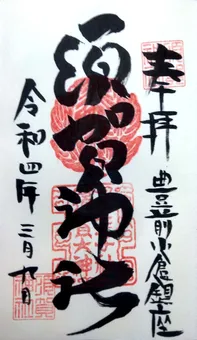 奉拝
豊前小倉鎮座
須賀神社
令和四年三月九日